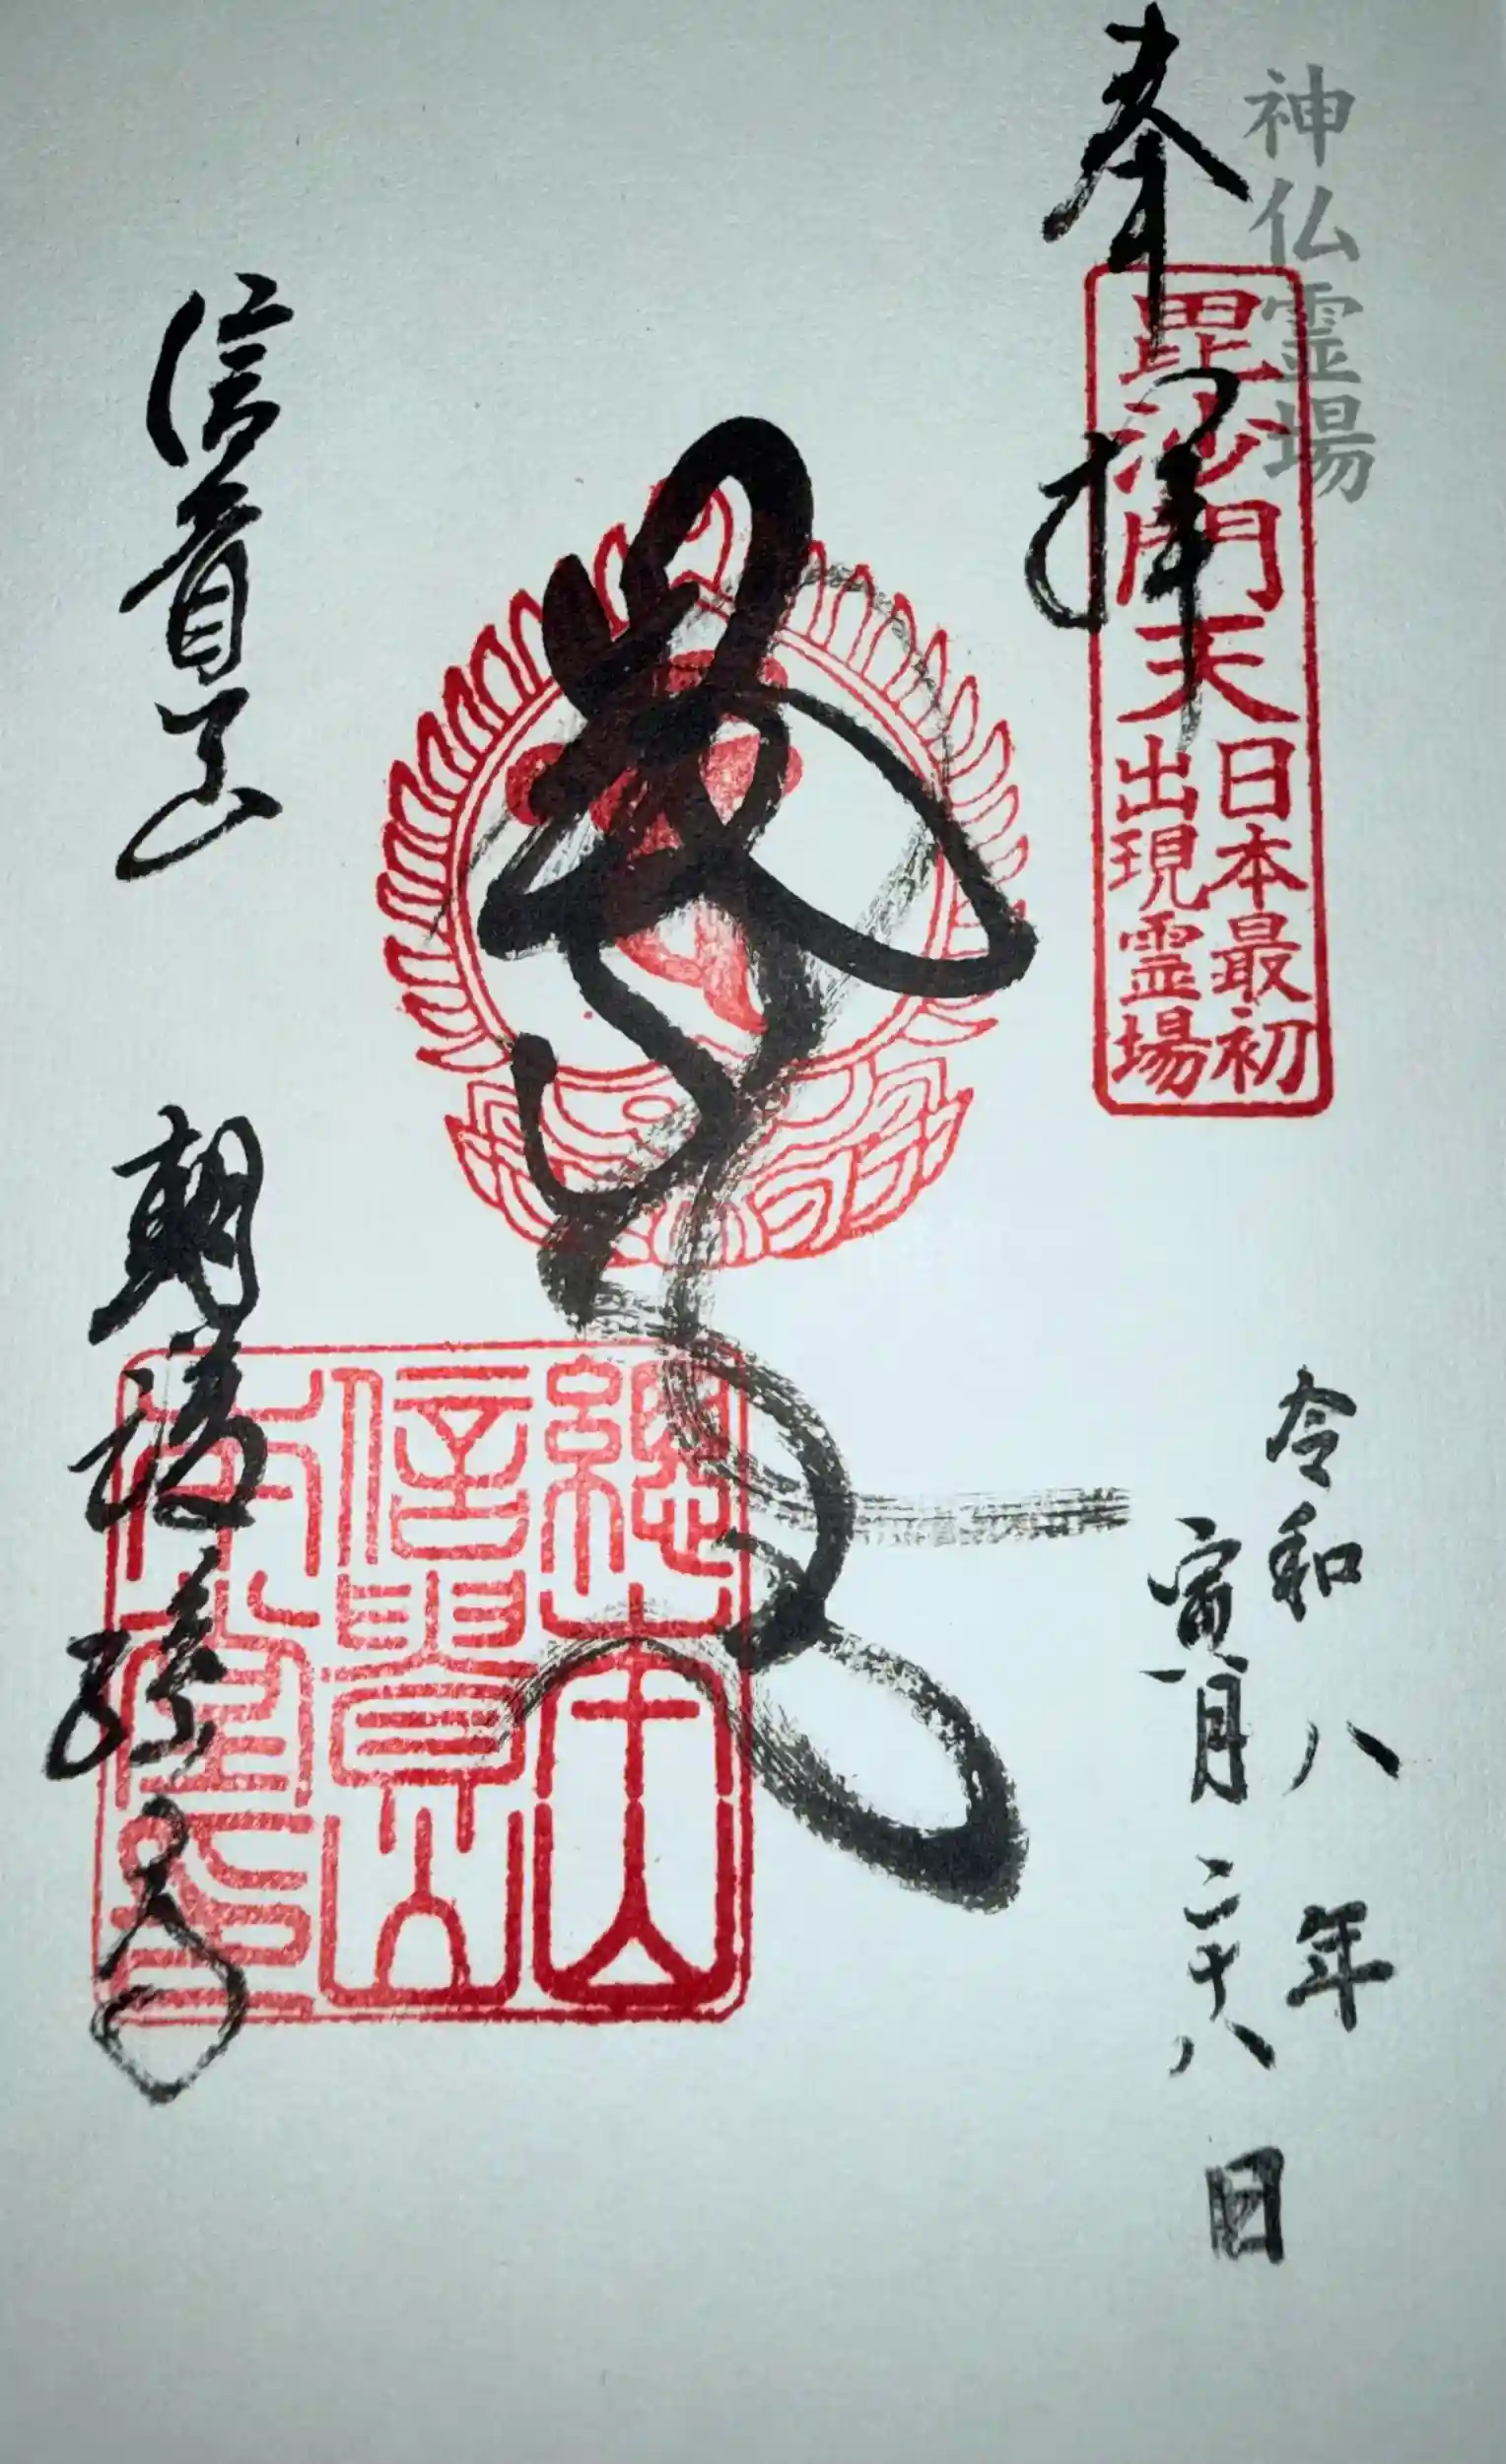 神仏霊場
奉拝
毘沙門天
日本最初
出現霊場
令和八年
寅月二十八日
總本山
信貴山
本堂印
信貴山 朝護孫子寺